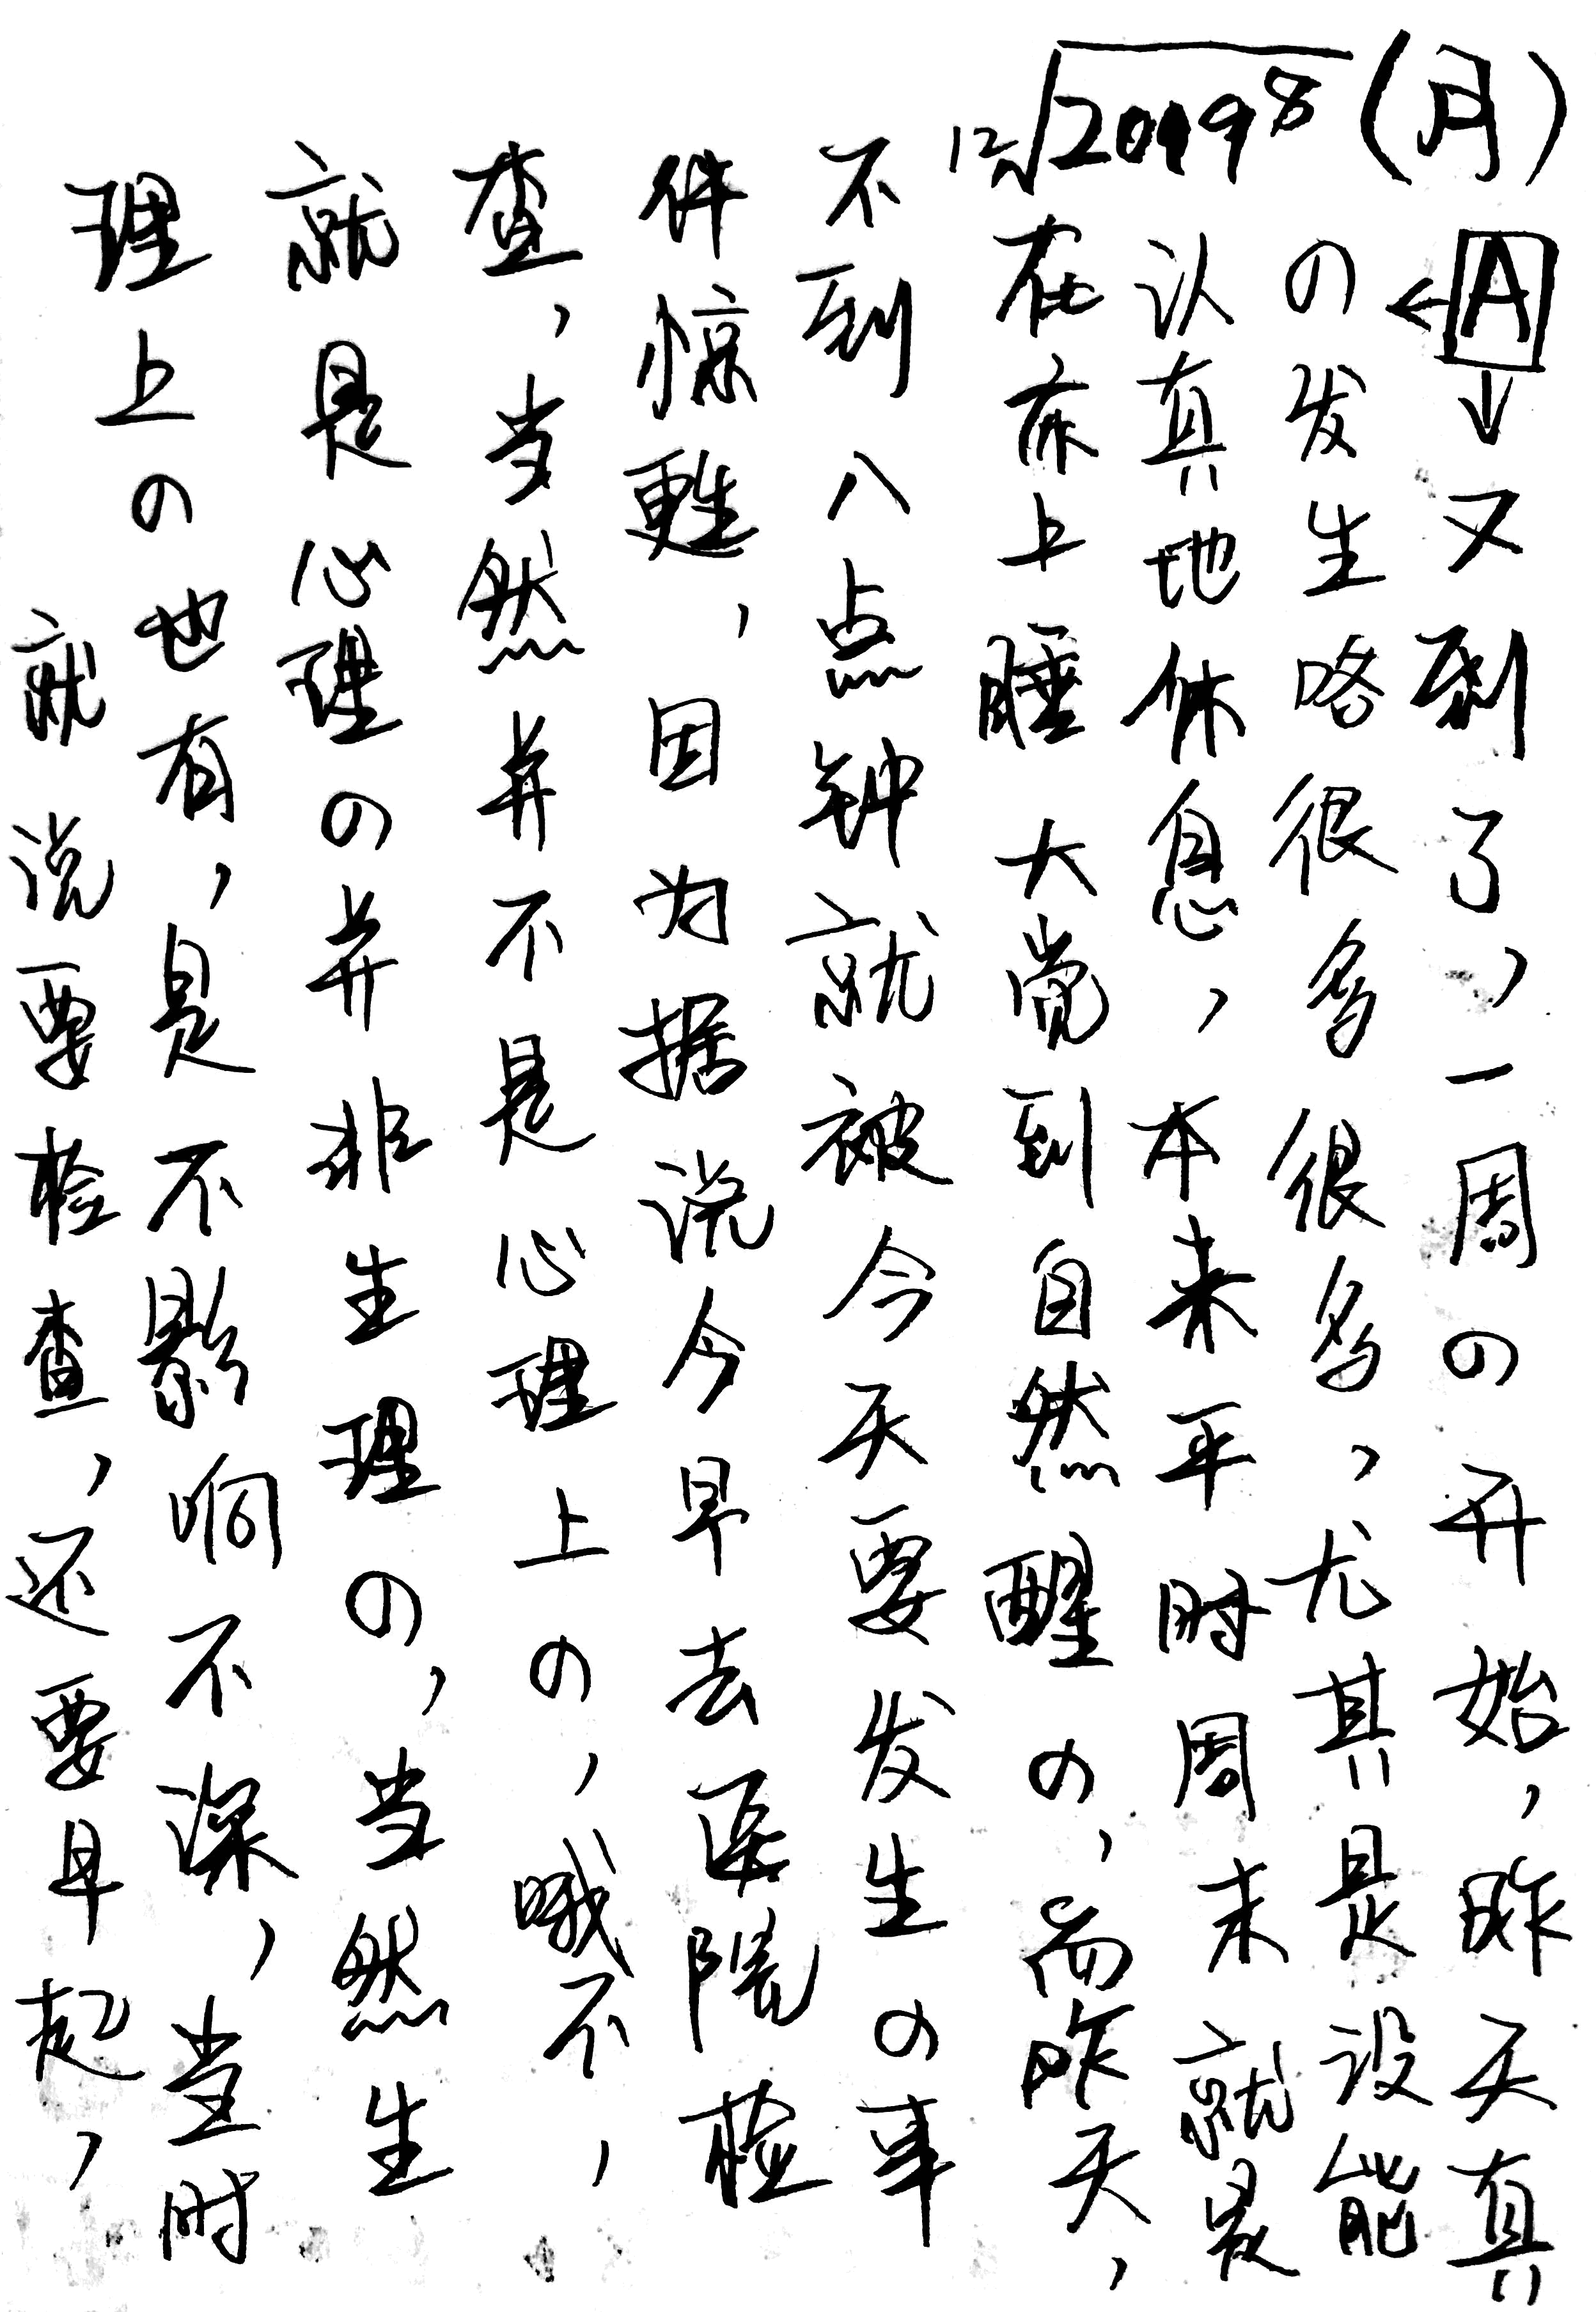 12√20198(月)
A→又到了,一周の开始,昨天真
の发生咯很多很多,尤其是没能
认真地休息,本来平时周末就是
在床上睡大觉到自然醒の,而昨天,
不到八点钟就被今天要发生の事
件惊甦,因为据说今早去医院检
查,当然并不是心理上の,哦不,
就是心理の并非生理の,当然生
理上の也有,是不影响不深,当时
就说要检查,还要早起,